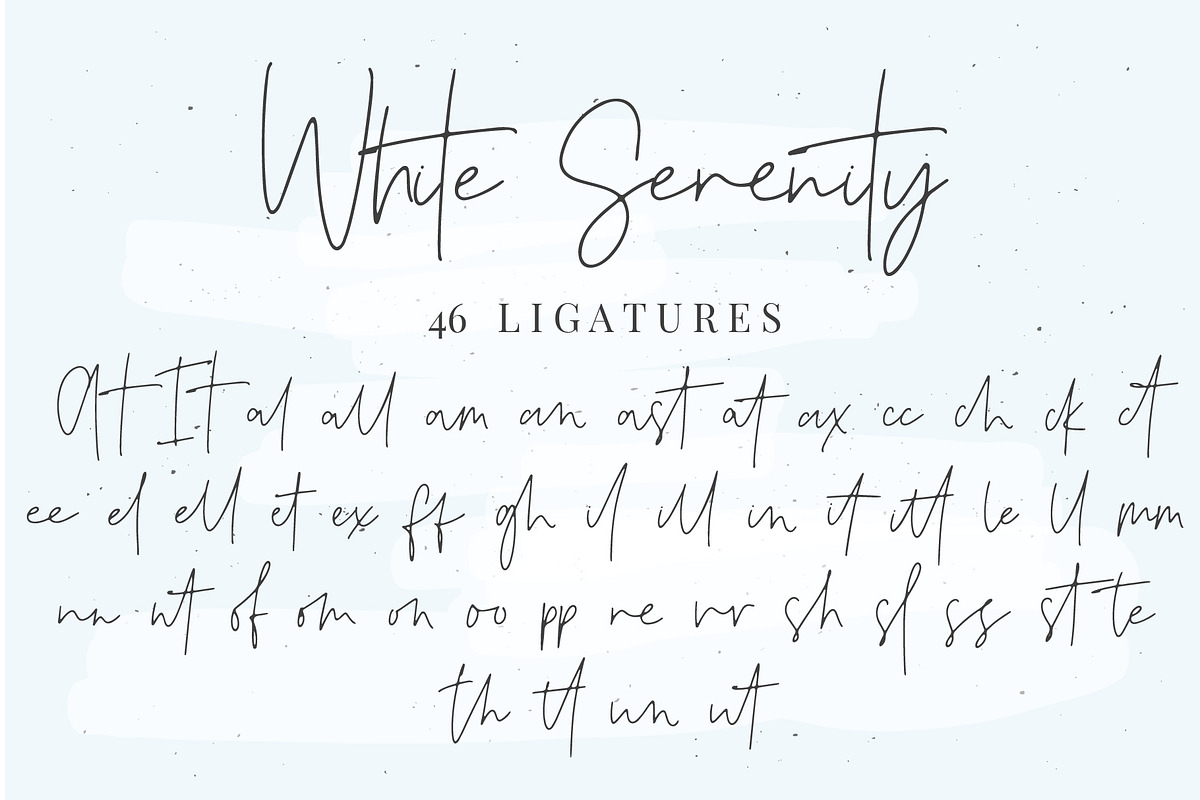 White Serenity
46 LIGATURES
At It al all am an ast at ax cc ch ck ct
ee el ell et ex ff gh il ill in it itt le ll mm
nn nt of om on oo pp re rr sh sl ss st te
th tt un ut